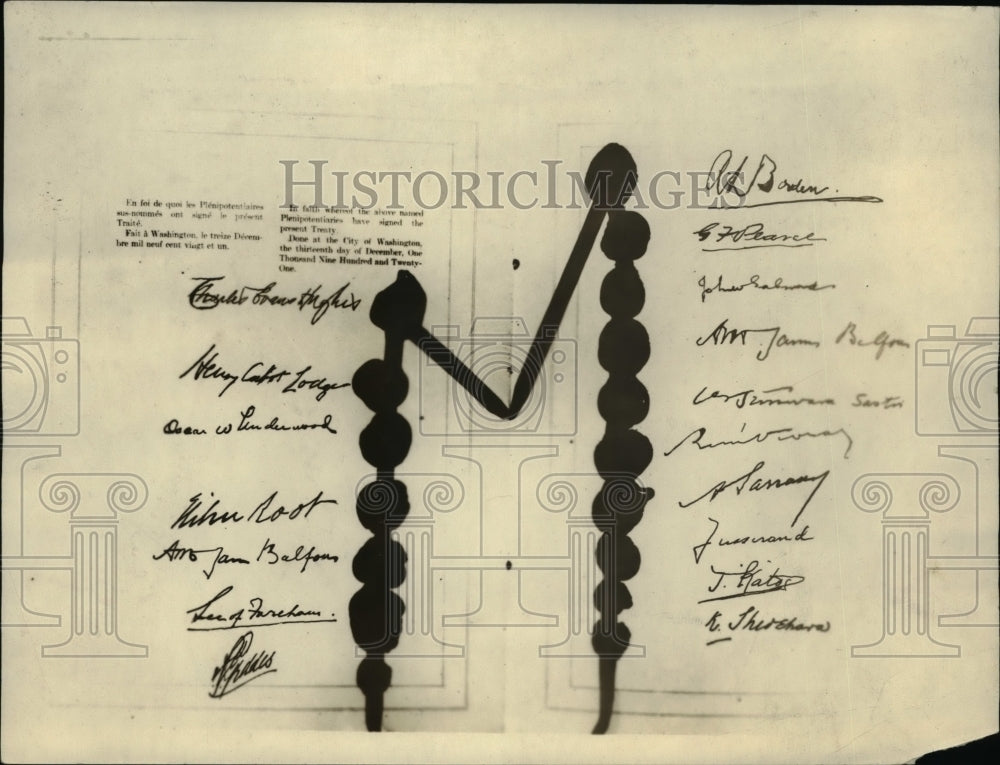 En foi de quoi les Plénipotentiaires
sus-nommés ont signé le présent
Traité.
Fait à Washington, le treize Décem-
bre mil neuf cent vingt et un.
In faith whereof the above named
Plenipotentiaries have signed the
present Treaty.
Done at the City of Washington,
the thirteenth day of December, One
Thousand Nine Hundred and Twenty-
One.
Charles Evans Hughes
Henry Cabot Lodge
Oscar W Underwood
Elihu Root
Arthur James Balfour
Lee of Fareham.
A Geddes
R L Borden.
G F Pearce
John W Salmond
Arthur James Balfour
V S Srinivasa Sastri
René Viviani
A Sarraut
Jusserand
T. Kato
K. Shidehara
HISTORIC IMAGES